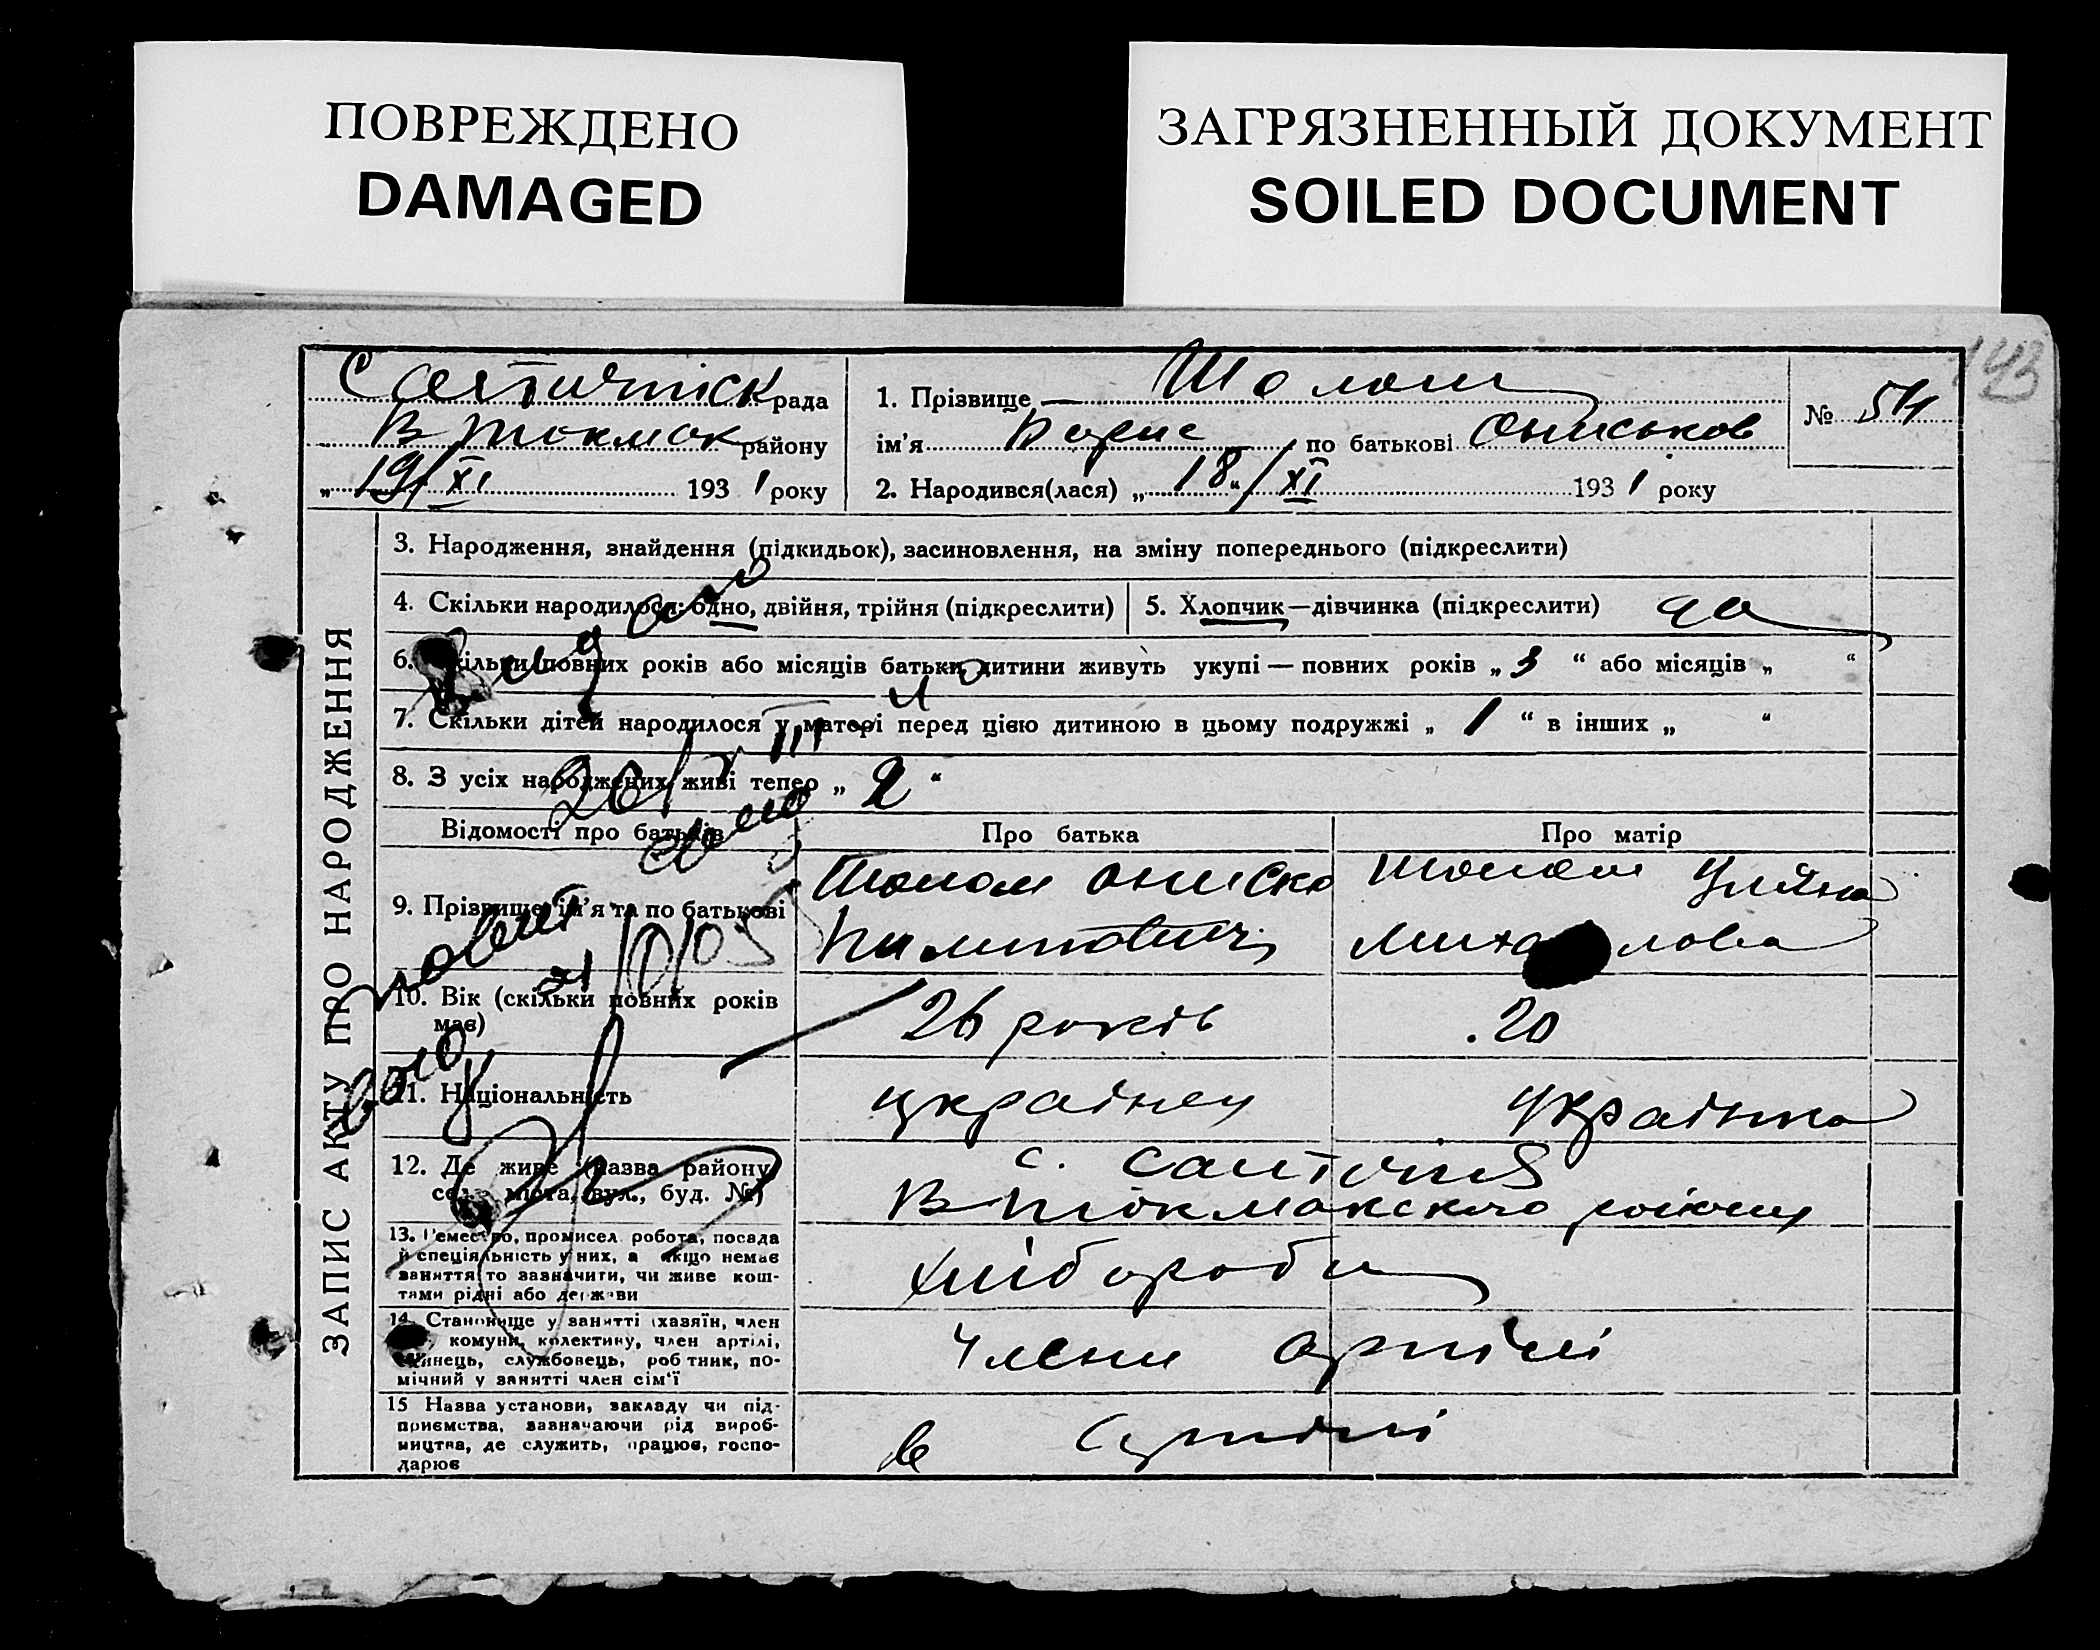 ПОВРЕЖДЕНО
DAMAGED
ЗАГРЯЗНЕННЫЙ ДОКУМЕНТ
SOILED DOCUMENT
143
рада
В Токмак району
„ 19/XI 1931 року
1. Прізвище Шолом
ім'я Борис, по батькові Оniськов
2. Народився(лася) „ 18 “/XI 1931 року
№ 54
ЗАПИС АКТУ ПРО НАРОДЖЕННЯ
3. Народження, знайдення (підкидьок), засиновлення, на зміну попереднього (підкреслити)
4. Скільки народилося: одно, двійня, трійня (підкреслити)
5. Хлопчик—дівчинка (підкреслити)
6. Скільки повних років або місяців батьки дитини живуть укупі — повних років „ 3 “ або місяців „ “
7. Скільки дітей народилося у матері перед цією дитиною в цьому подружжі „ 1 “ в інших „ “
8. З усіх народжених живі тепер „ 2 “
Відомості про батьків
Про батька
Про матір
9. Прізвище, ім'я та по батькові
Шолом Ониско
Шолом Уляна
10. Вік (скільки повних років має)
26 років
20
11. Національність
українец
українка
12. Де живе (назва району, села, міста, вул., буд. №)
В Токмакского району
13. Ремество, промисел, робота, посада
й спеціяльність у них, а якщо немає
заняття то зазначити, чи живе кош-
тами рідні або держави
хлібороби
14. Становище у занятті (хазяїн, член
комуни, колективу, член артілі,
службовець, робітник, по-
мічний у занятті член сім'ї
члени артілі
15 Назва установи, закладу чи під-
приємства, зазначаючи рід вироб-
ництва, де служить, працює, госпо-
дарює
в артілі